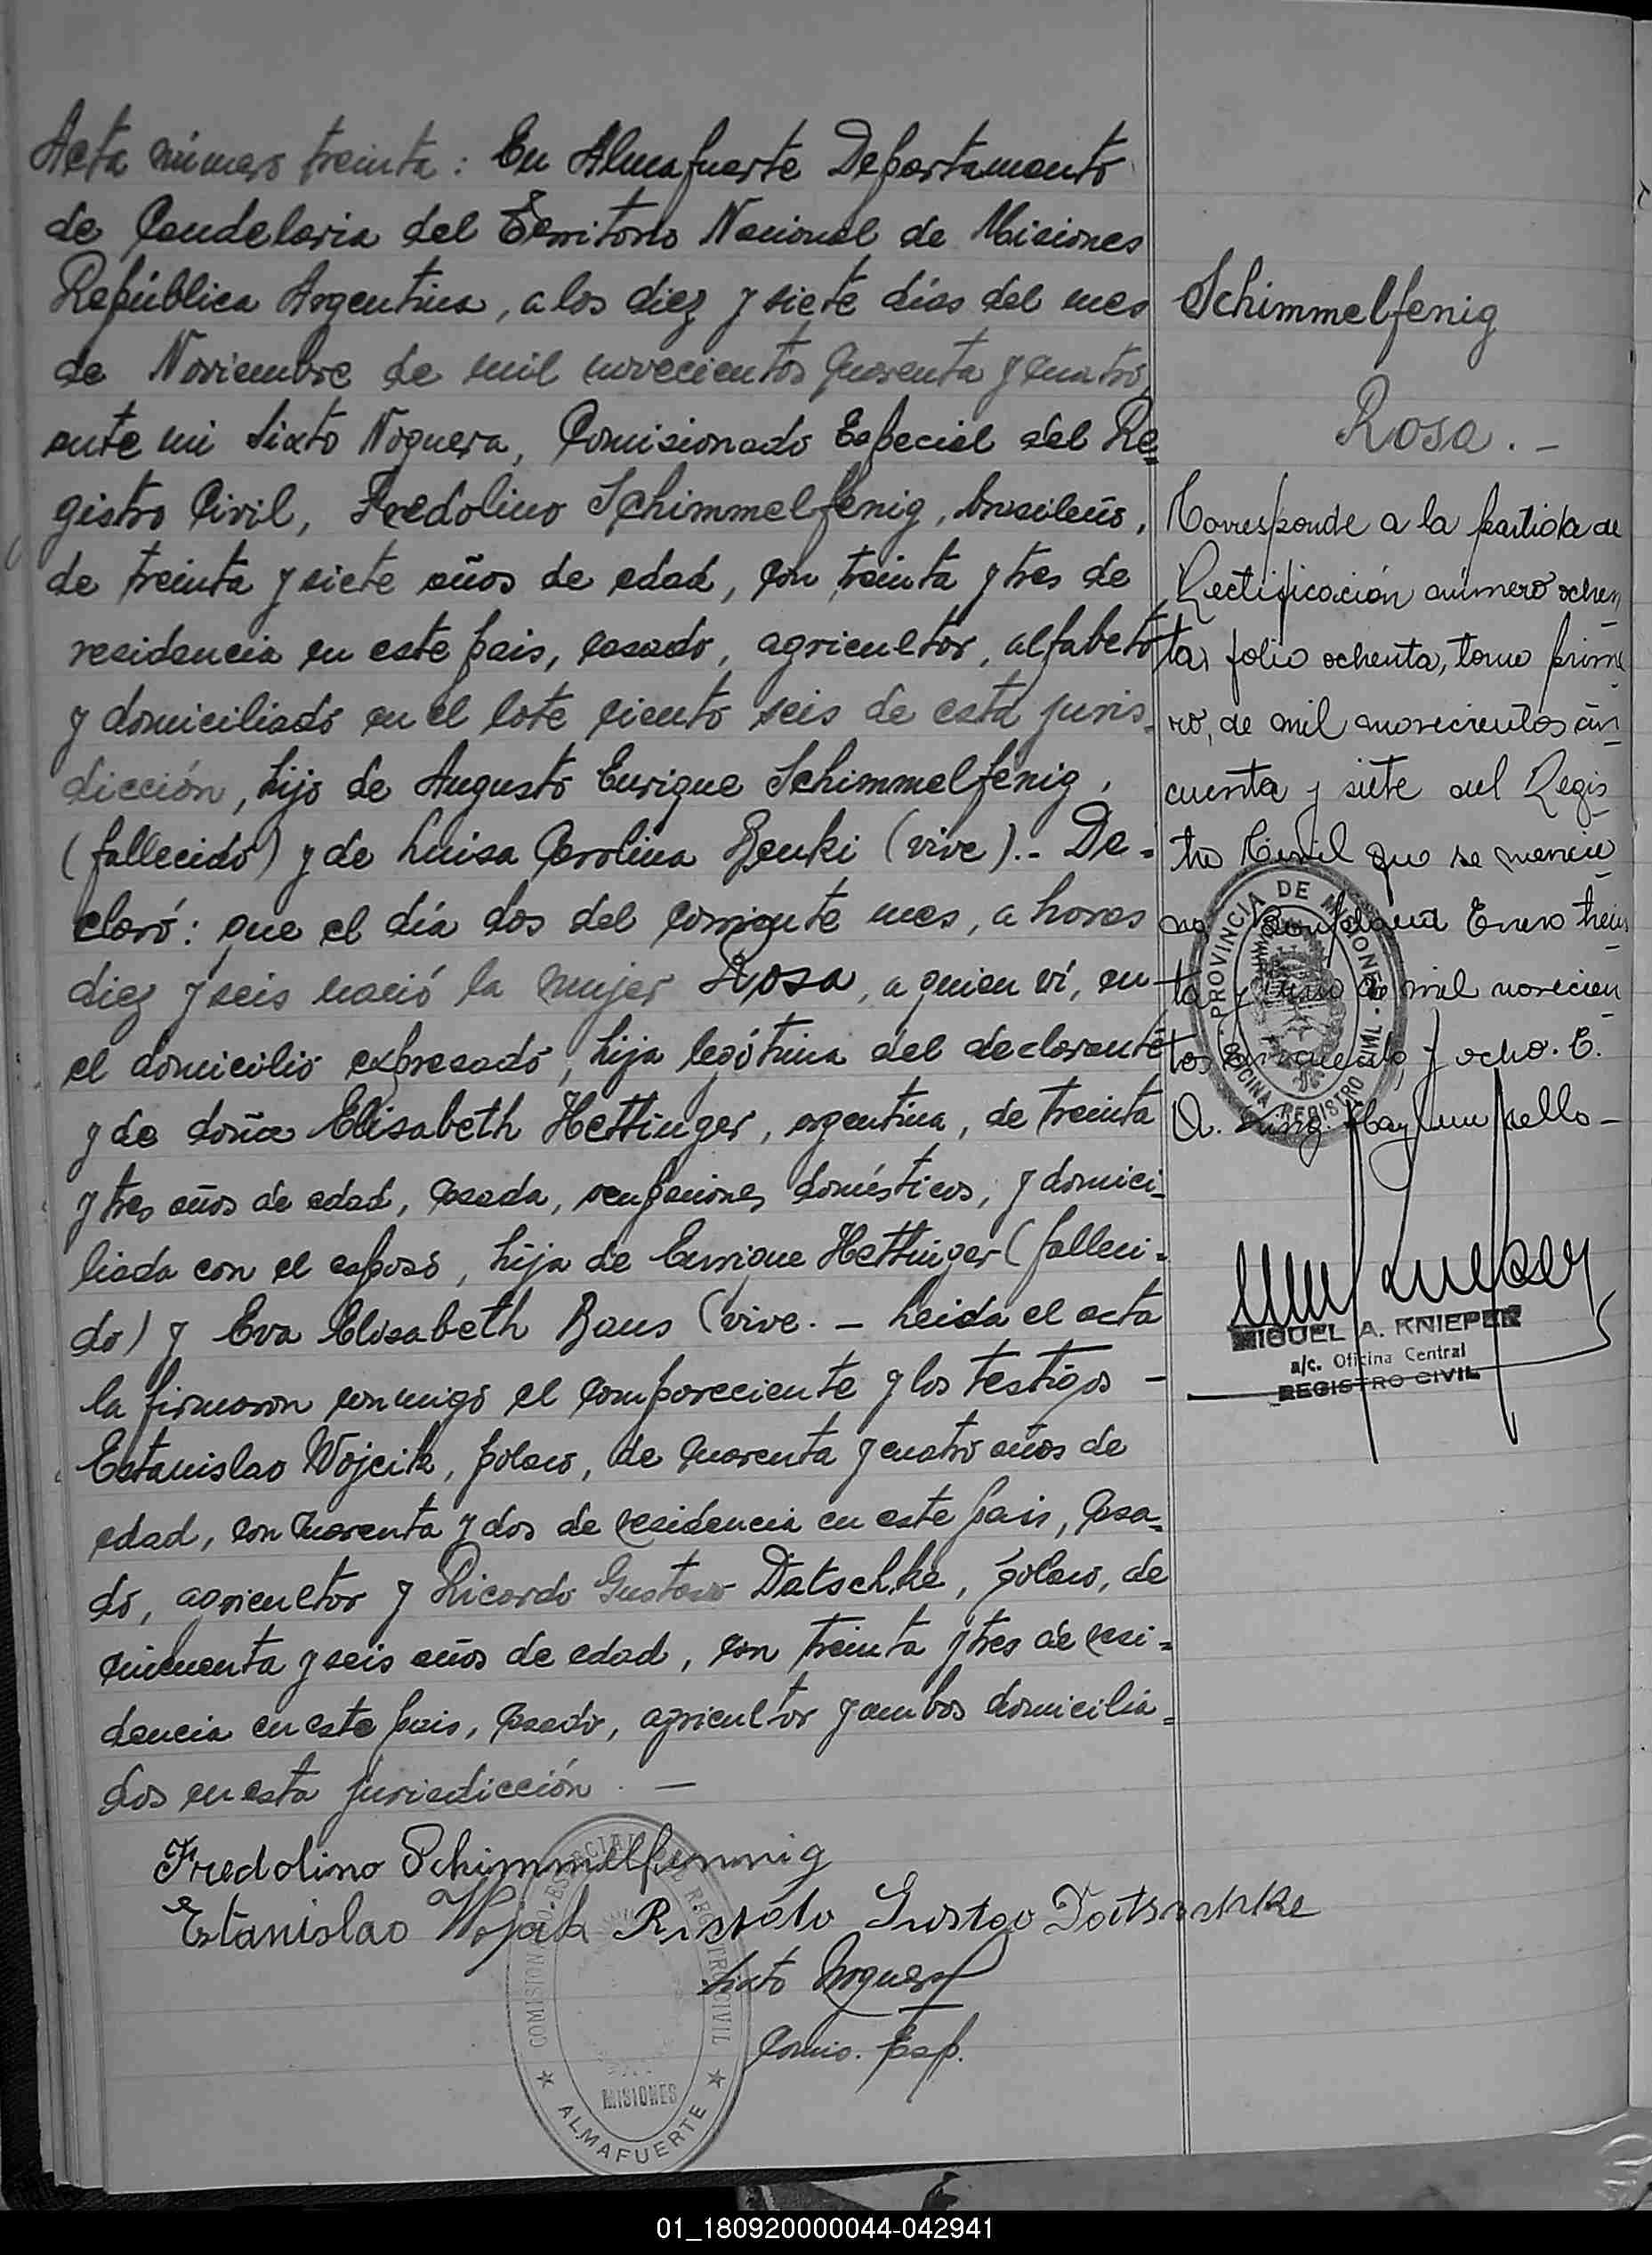 Acta número treinta: En Almafuerte Departamento
de Candelaria del Territorio Nacional de Misiones
República Argentina, a los diez y siete días del mes
de Noviembre de mil novecientos cuarenta y cuatro,
ante mi Sixto Noguera, Comisionado Especial del Re=
gistro Civil, Fredolino Schimmelfenig, brasileño,
de treinta y siete años de edad, con treinta y tres de
residencia en este pais, casado, agricultor, alfabeto
y domiciliado en el lote ciento seis de esta juris=
dicción, hijo de Augusto Enrique Schimmelfenig,
(fallecido) y de Luisa Carolina (vive).- De=
claró: que el día dos del corriente mes, a horas
diez y seis nació la mujer Rosa, a quien ví, en
el domicilio expresado, hija legítima del declarante
y de doña Elisabeth Hettinger, argentina, de treinta
y tres años de edad, casada, domésticos, y domici=
liada con el esposo, hija de Enrique Hettinger (falleci=
do) y Eva Elisabeth Baus (vive. - Leida el acta
la firmaron conmigo el compareciente y los testigos -
Estanislao Wojcik, polaco, de cuarenta y cuatro años de
edad, con cuarenta y dos de residencia en este pais, casa=
do, agricultor y Ricardo Gustavo Datschke, polaco, de
cincuenta y seis años de edad, con treinta y tres de resi=
dencia en este pais, casado, agricultor y ambos domicilia=
dos en esta jurisdicción. -
Fredolino Schimmelfennig
Estanislao Wojcik Ricardo Gustavo Datschke
Sixto Noguera
Comis. Esp.
COMISIONADO ESPECIAL DEL REGISTRO CIVIL
MISIONES
ALMAFUERTE
Schimmelfenig
Rosa. -
Corresponde a la partida de
Rectificación número ochen
ta, folio ochenta, tomo prime
ro, de mil novecientos cin
cuenta y siete del Regis
tro Civil que se mencio
na Enero trein
ta y uno de mil novecien
tos cincuenta y ocho. E.
PROVINCIA DE MISIONES
OFICINA REGISTRO CIVIL
MIGUEL A. KNIEPER
a/c. Oficina Central
REGISTRO CIVIL
01_180920000044-042941